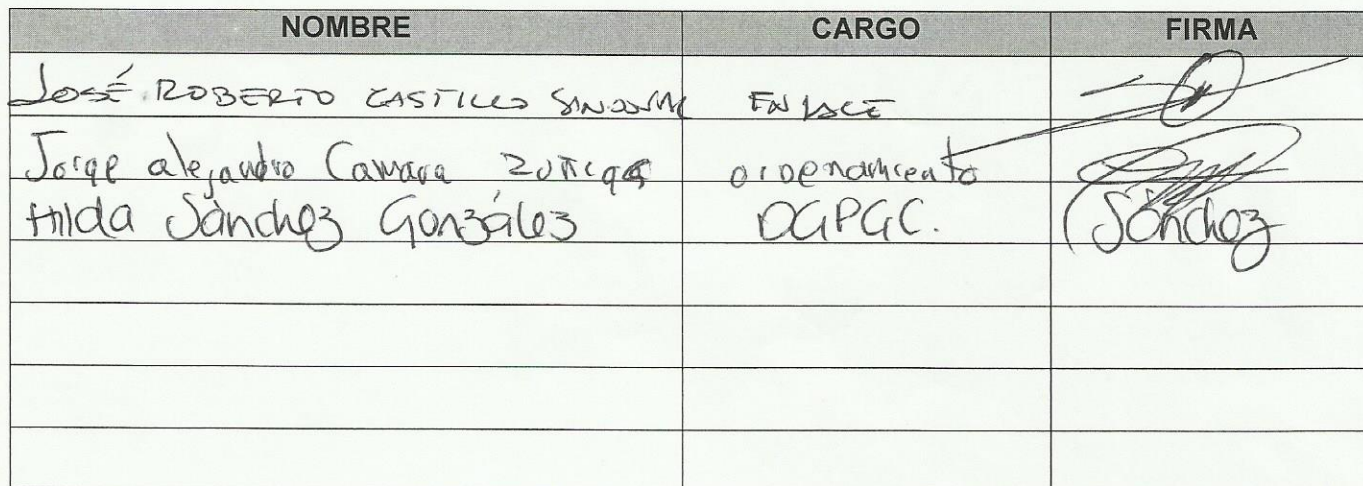 NOMBRE CARGO FIRMA
JOSÉ ROBERTO CASTILLO ENLACE
Jorge alejandro Camara Zuñiga ordenamiento
Hilda Sánchez González DGPGC. Sánchez